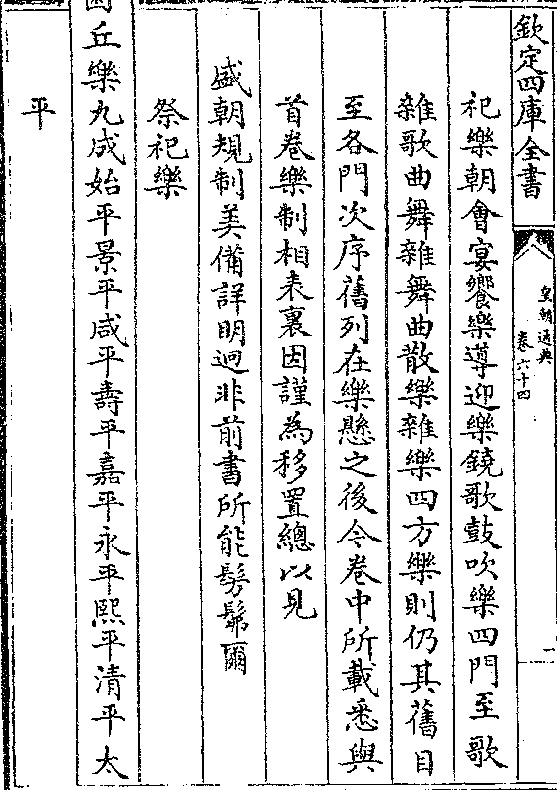 欽定四庫全書
皇朝通典
卷六十四
一
祀樂朝會宴饗樂導迎樂鐃歌鼓吹樂四門至歌
雜歌曲舞雜舞曲散樂雜樂四方樂則仍其舊目
至各門次序舊列在樂懸之後今卷中所載悉與
首卷樂制相表裏因謹為移置總以見
盛朝規制美備詳明迥非前書所能髣髴爾
祭祀樂
圜丘樂九成始平景平咸平壽平嘉平永平熙平清平太
平